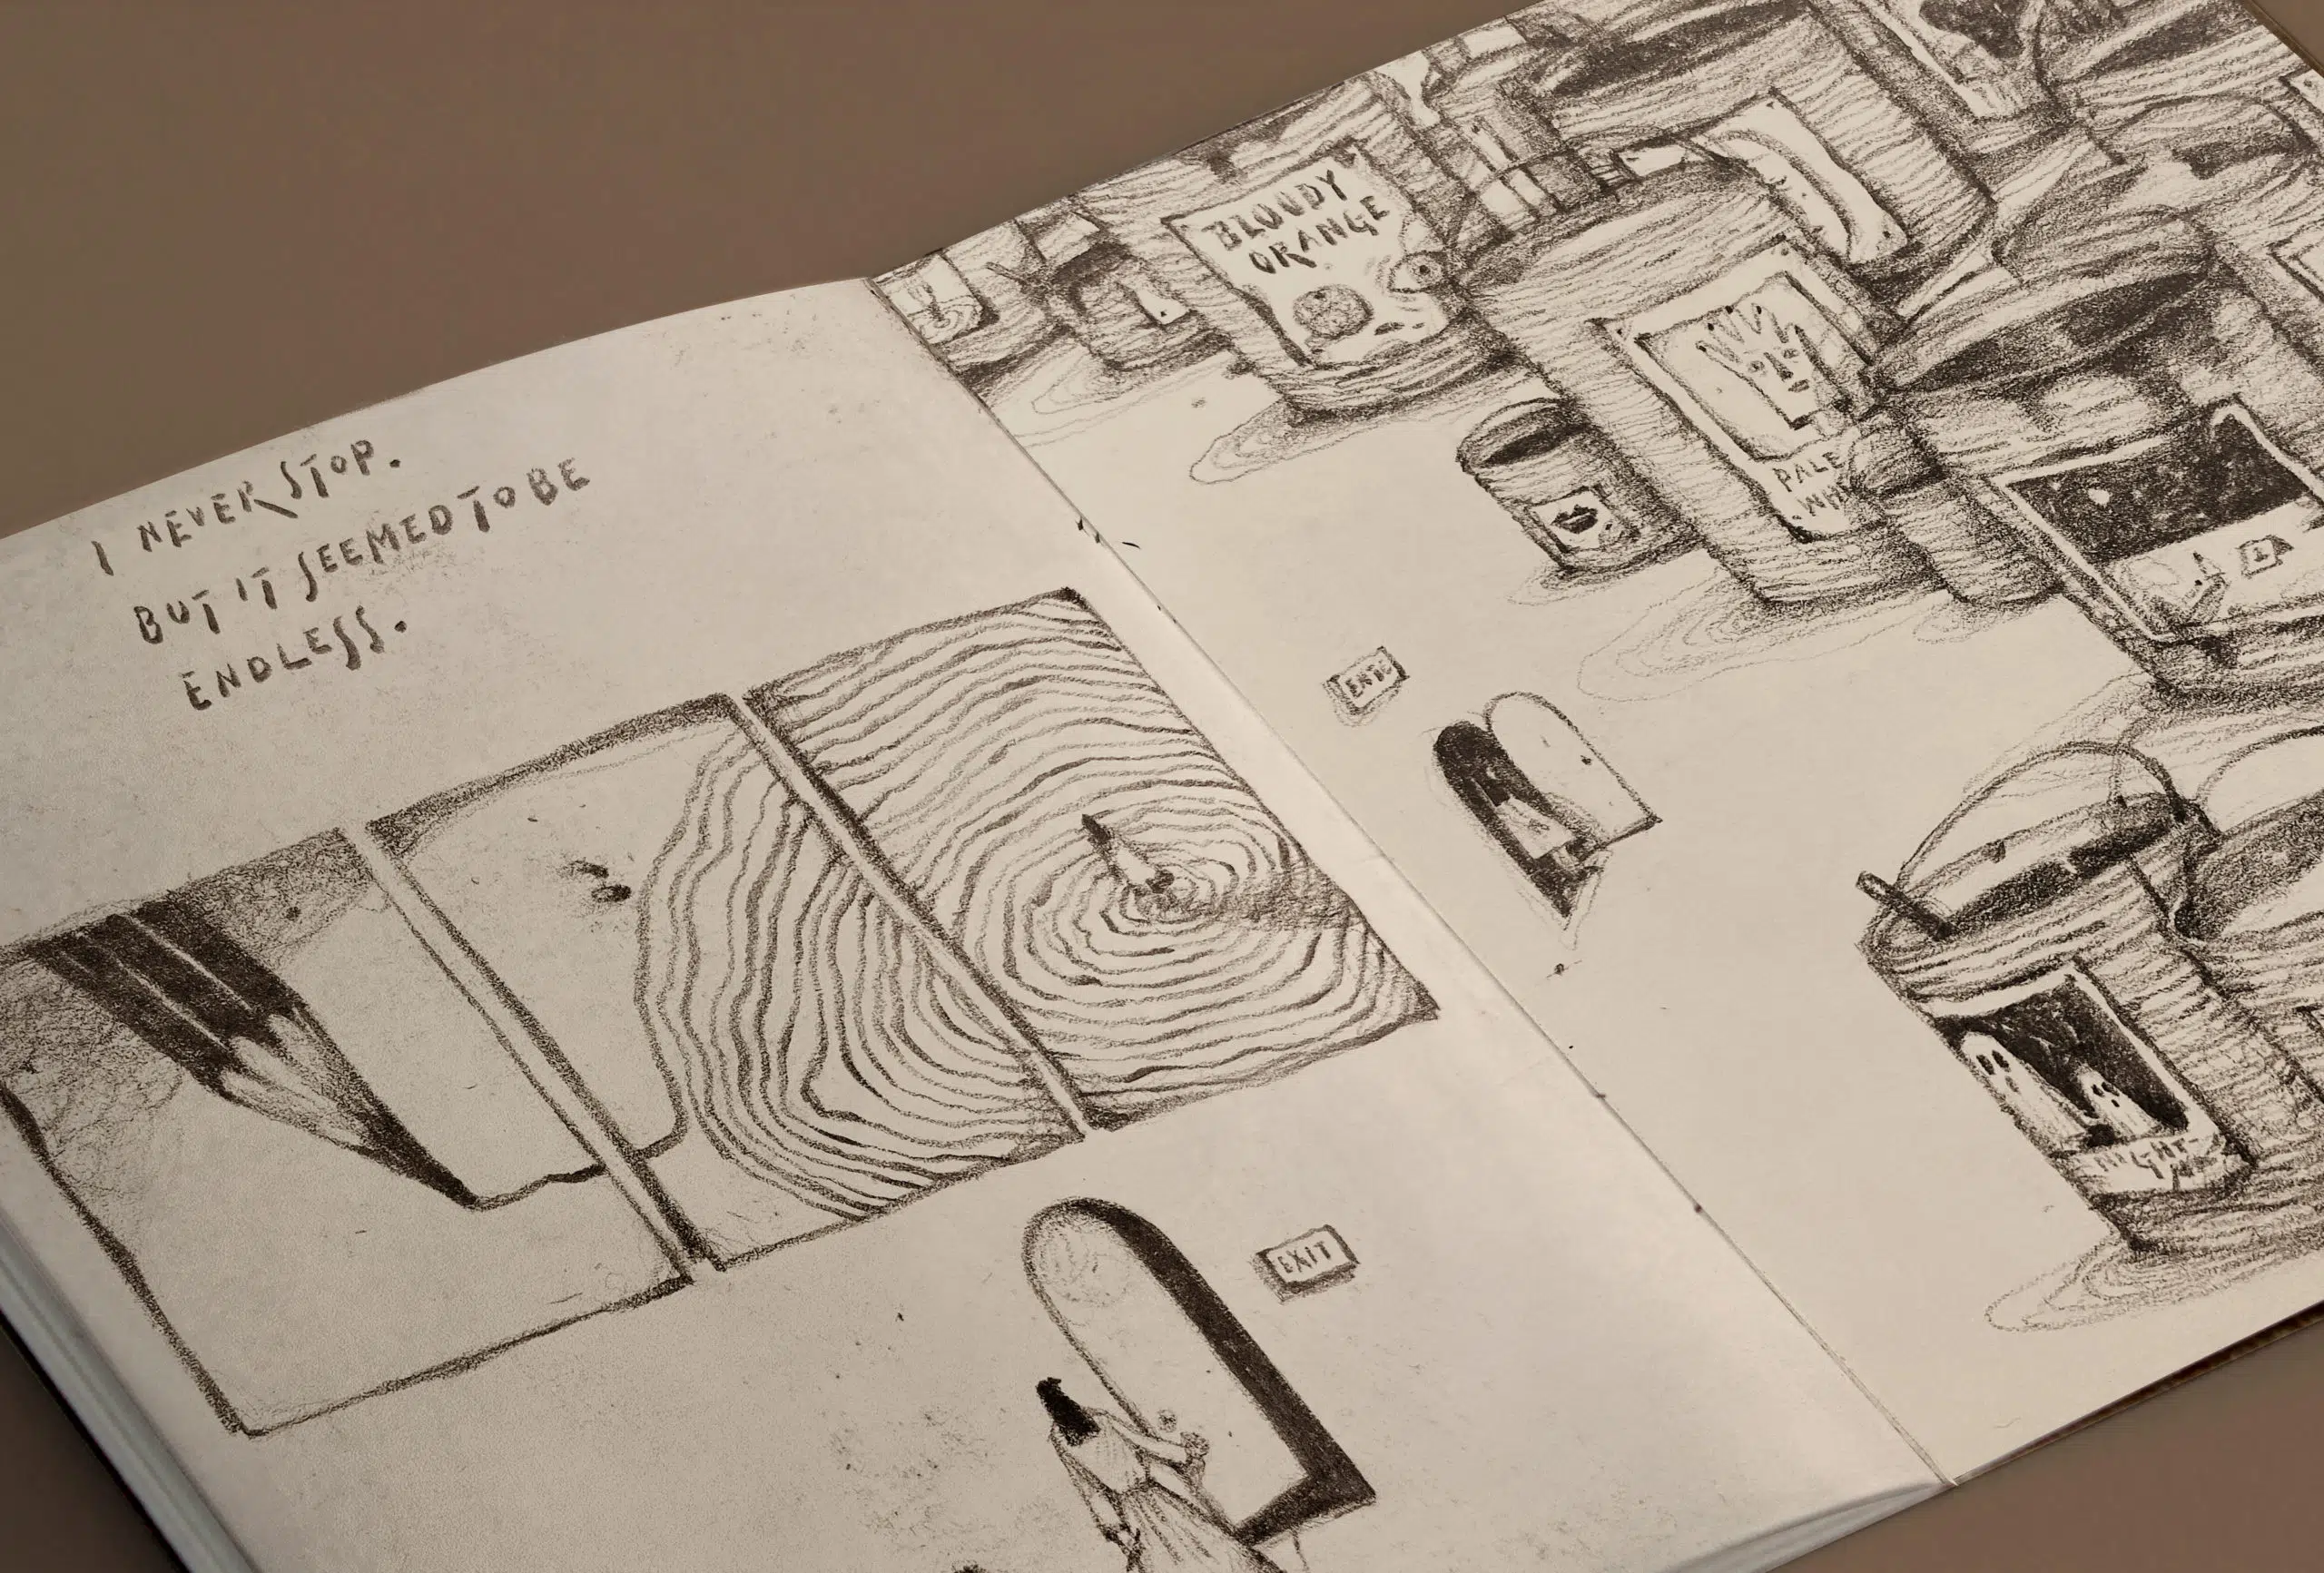 I NEVER STOP.
BUT IT SEEMED TO BE
ENDLESS.
EXIT
BLOODY
ORANGE
PALE